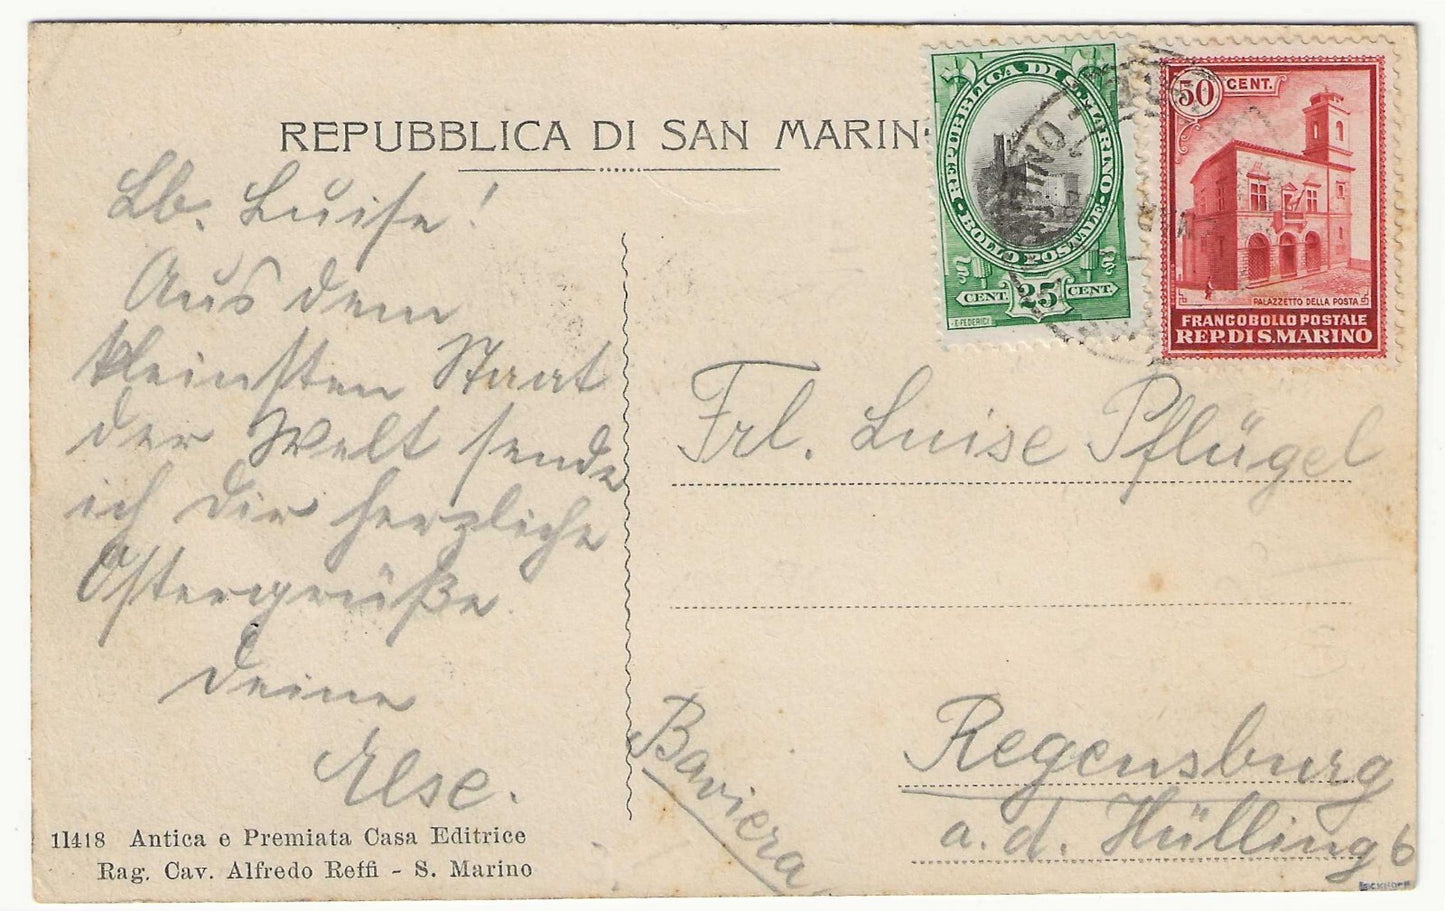 REPUBBLICA DI SAN MARIN
Lb. Luise!
Aus dem
kleinsten Staat
der Welt sende
ich Dir herzliche
Ostergrüße.
Deine
Else.
11418 Antica e Premiata Casa Editrice
Rag. Cav. Alfredo Reffi - S. Marino
REPUBBLICA DI S. MARINO
BOLLO POSTALE
CENT. 25 CENT.
E. FEDERICI
50 CENT.
PALAZZETTO DELLA POSTA
FRANCOBOLLO POSTALE
REP. DI S. MARINO
Frl. Luise Pflügel
Baviera
Regensburg
a. d. Hülling 6